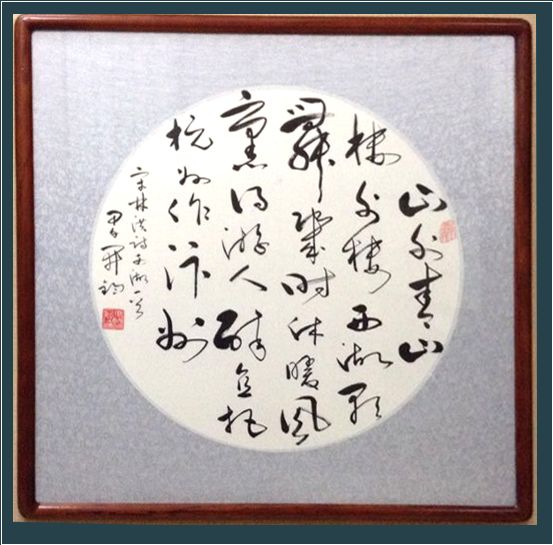 山外青山
楼外楼西湖歌
舞幾时休暖风
熏得游人醉直把
杭州作汴州
宋林洪诗西湖一首